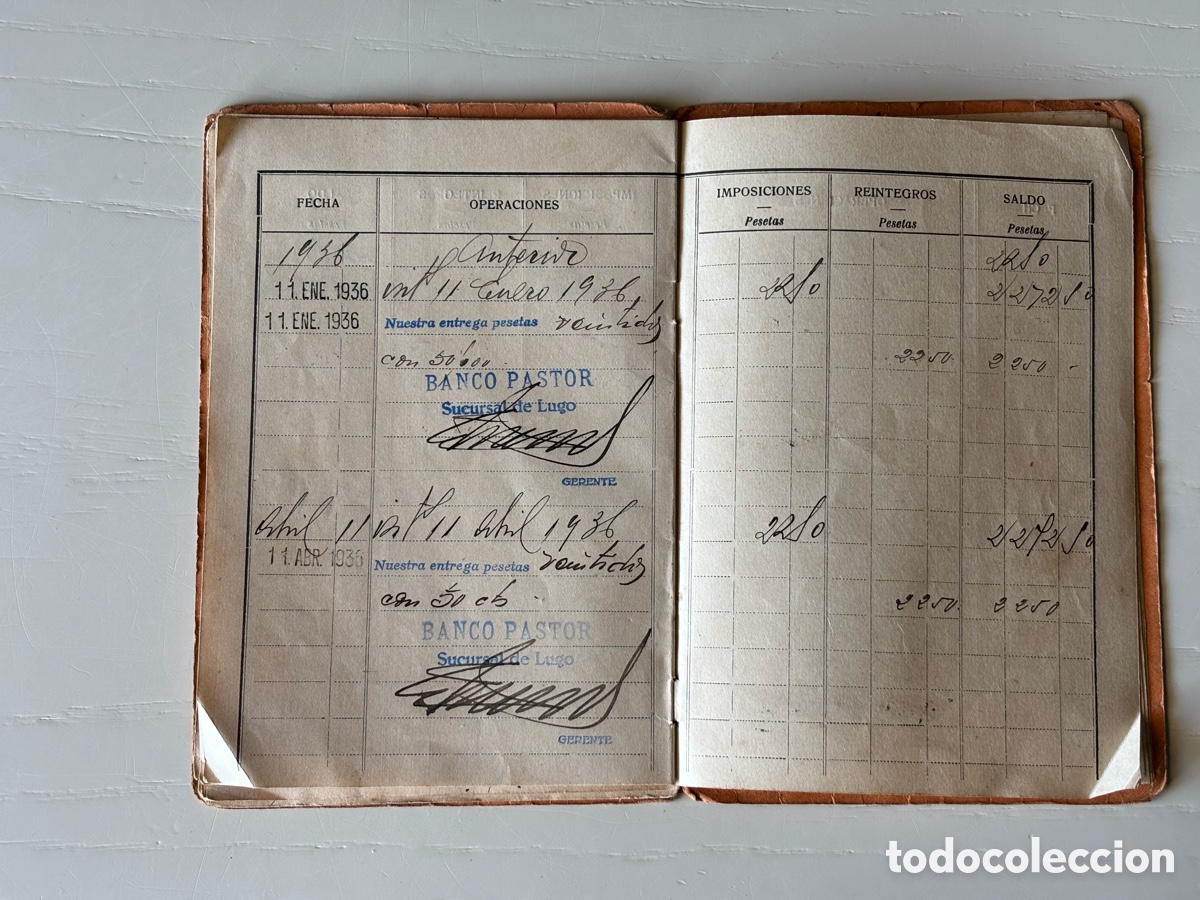 FECHA OPERACIONES IMPOSICIONES REINTEGROS SALDO
Pesetas Pesetas Pesetas
1936 Anterior 2250
11. ENE. 1936 int 11 Enero 1936 2250 2/27250
11. ENE. 1936 Nuestra entrega pesetas veintidos
con 50 2250. 2250 -
BANCO PASTOR
Sucursal de Lugo
GERENTE
Abril 11 int 11 Abril 1936 2250 2/27250
11. ABR. 1936 Nuestra entrega pesetas veintidos
con 50 cts. 2250. 2250
BANCO PASTOR
Sucursal de Lugo
GERENTE
todocoleccion